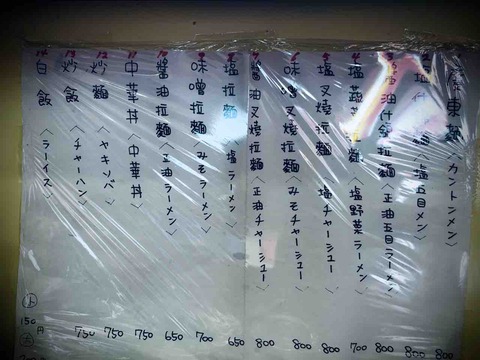 広東麺〈カントンメン〉 800
塩什〈塩五目メン〉 800
油什会拉麺〈正油五目ラーメン〉 800
塩蔬菜拉麺〈塩野菜ラーメン〉 700
5 塩叉焼拉麺〈塩チャーシュー〉 800
6 味噌叉焼拉麺〈みそチャーシュー〉 800
7 醬油叉焼拉麺〈正油チャーシュー〉 800
8 塩拉麺〈塩ラーメン〉 650
9 味噌拉麺〈みそラーメン〉 700
10 醬油拉麺〈正油ラーメン〉 650
11 中華丼〈中華丼〉 750
12 炒麺〈ヤキソバ〉 750
13 炒飯〈チャーハン〉 750
14 白飯〈ラーイス〉 小 150円